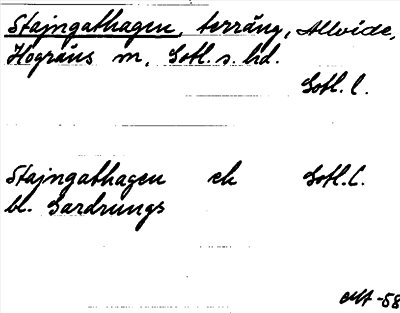 Stajngathagen, terräng, Allvide,
Hogräns sn, Gotl. s. hd.
Gotl. l.
Stajngathagen ek Gotl. l.
bl. Gardrungs